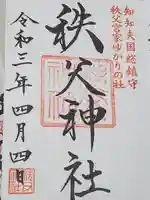 知知夫国総鎮守
秩父宮家ゆかりの社
秩父神社
令和三年四月四日